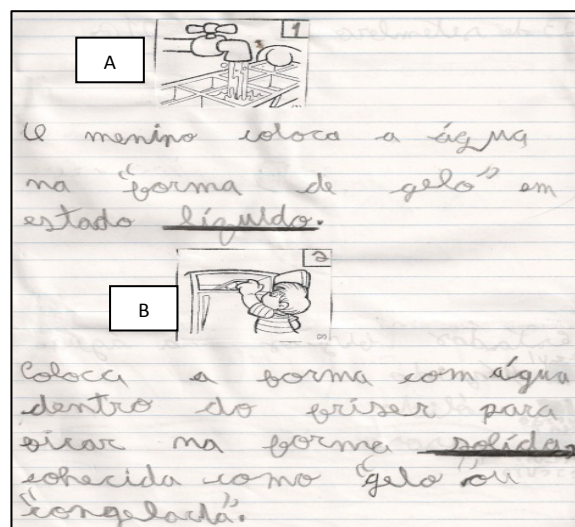 1
A
O menino coloca a água
na "forma de gelo" em
estado líquido.
2
B
Coloca a forma com água
dentro do friser para
ficar na forma solida,
cohecida como "gelo ou
"congelada".